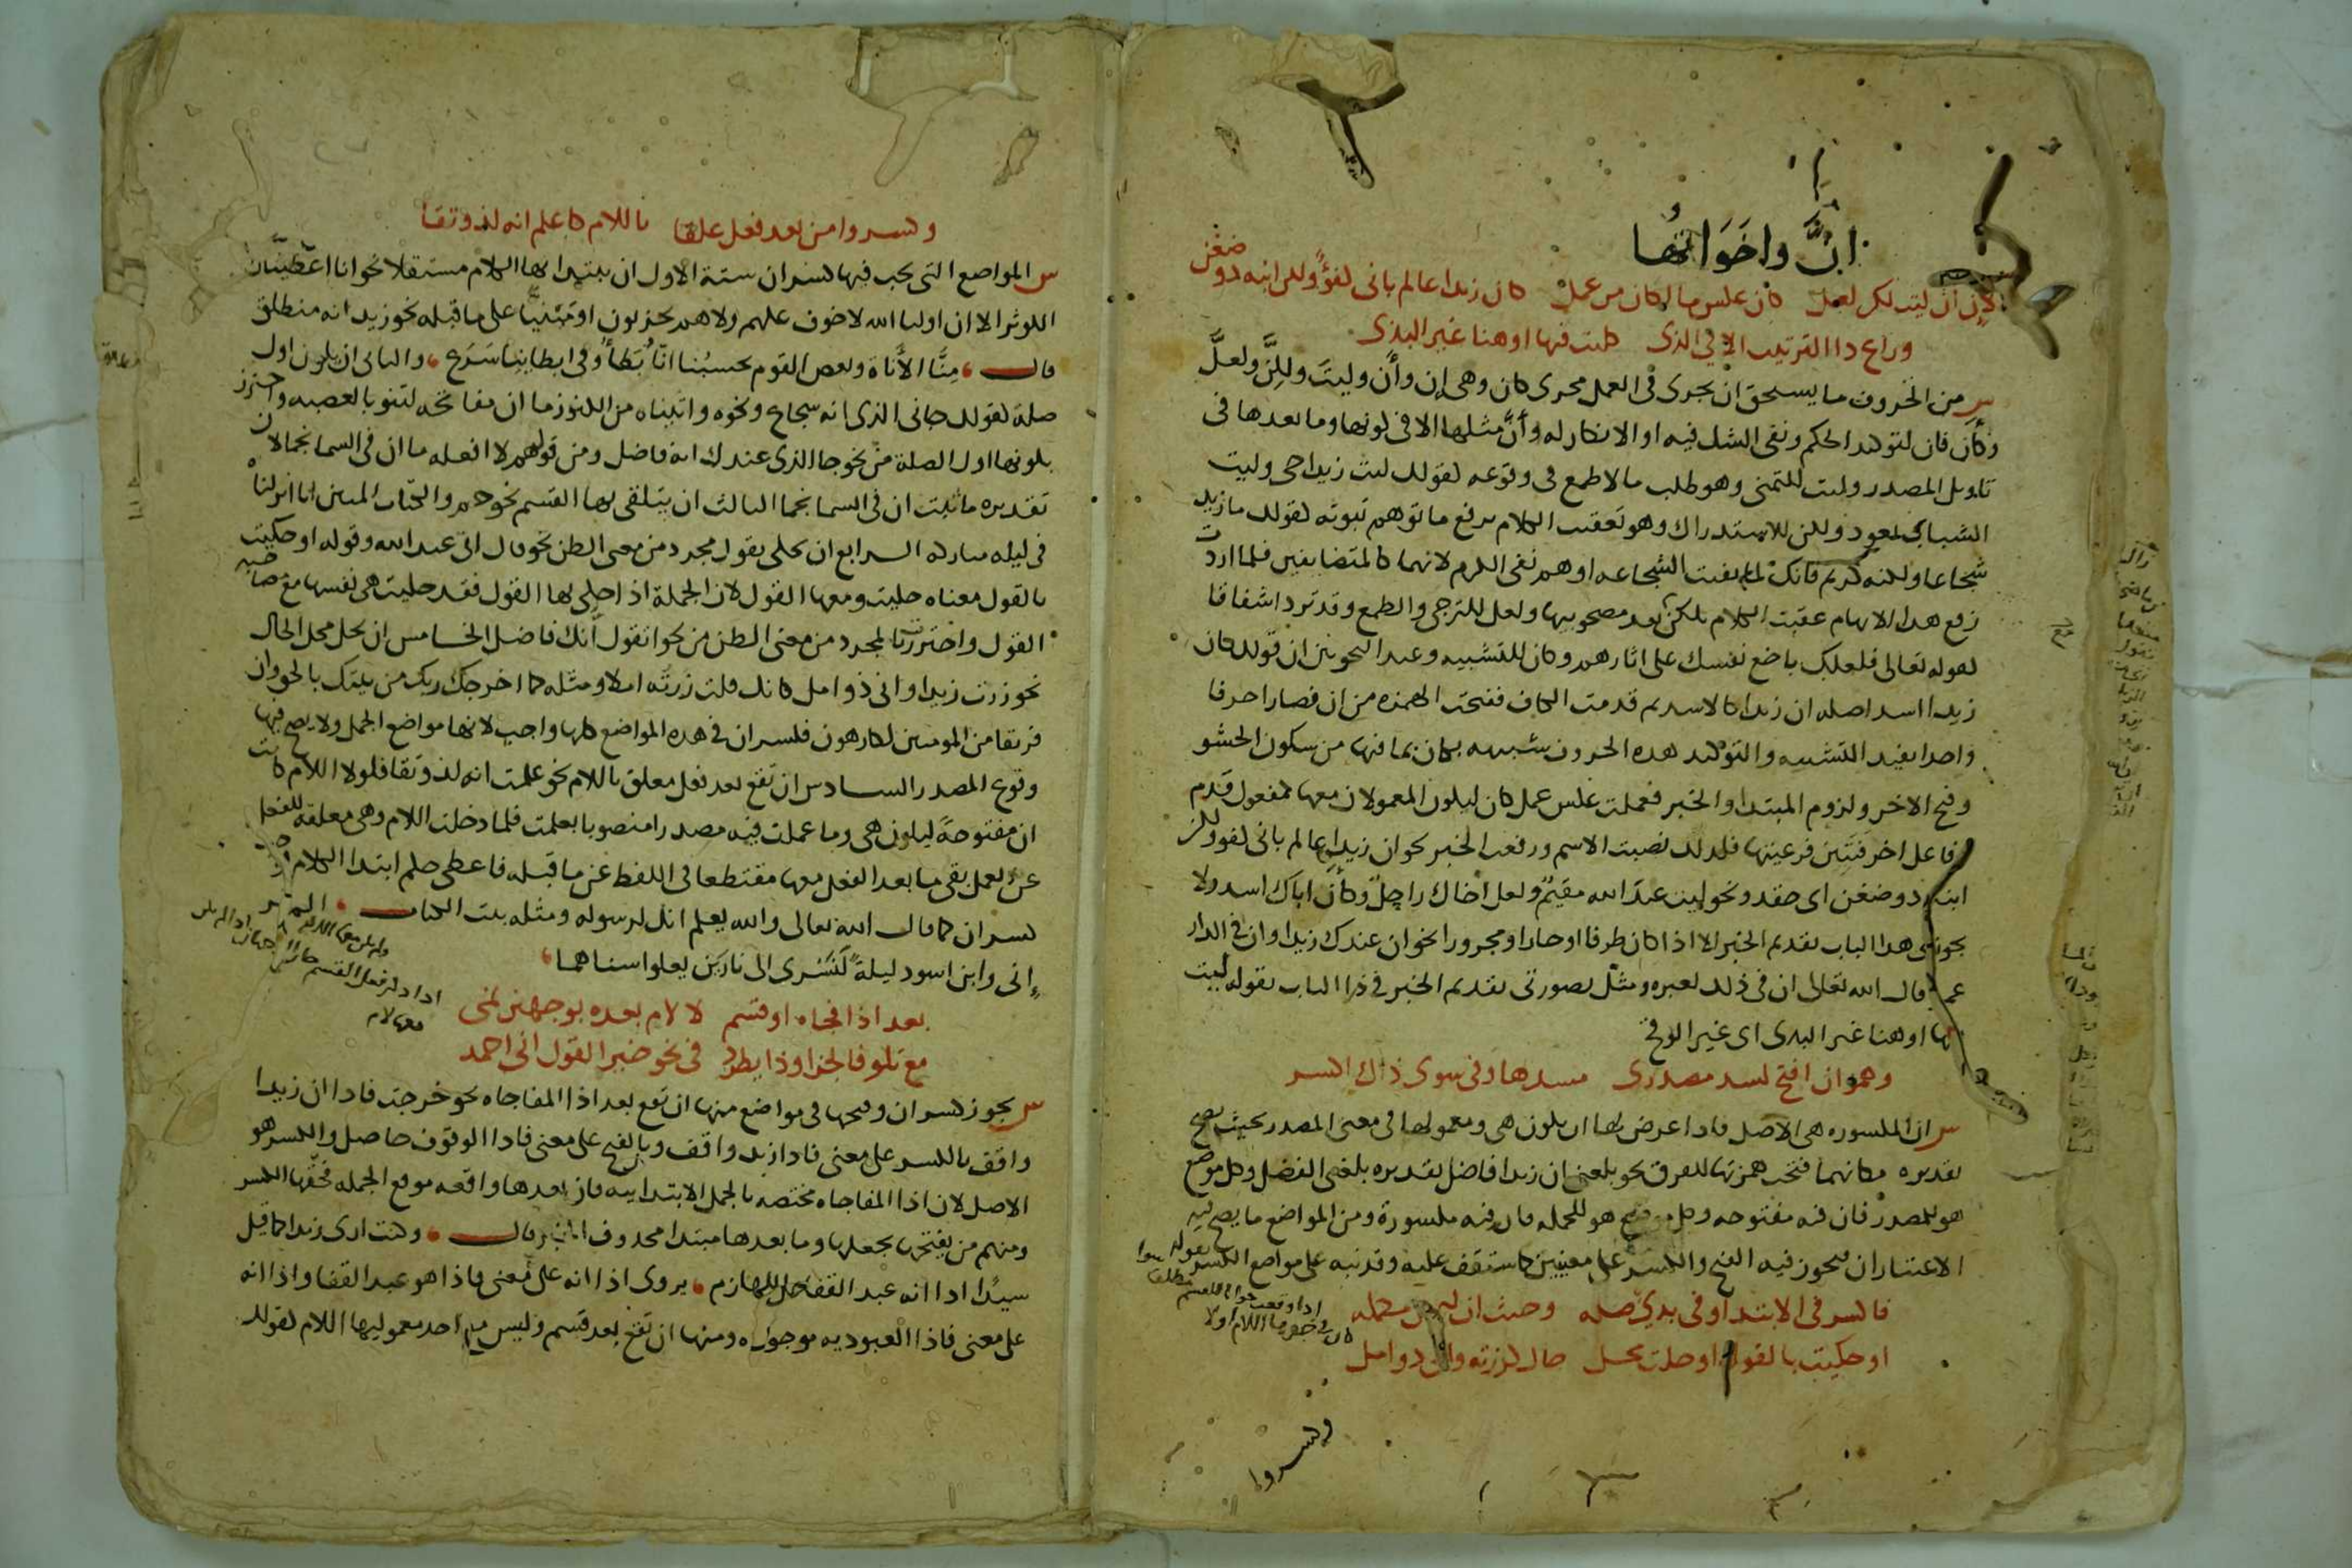 إنّ واخَوَاتُها
لإن ان ليت لكن لعل كان عكس ما لكان من عمل كان زيدا عالم بانى كفؤ ولكن ابنه ذو ضغن
وراع ذا الترتيب الا في الذى كليت فيها او هنا غير البذى
س من الحروف ما يستحق ان يجرى فى العمل مجرى كان وهى إن وأن وليت ولكن ولعلّ
وكأن فان لتوكيد الحكم ونفى الشك فيه او الانكار له وأنّ مثلها الا فى كونها وما بعدها فى
تاويل المصدر وليت للتمنى وهو طلب ما لا طمع فى وقوعه كقولك ليت زيدا حى وليت
الشباب يعود ولكن للاستدراك وهو تعقيب الكلام برفع ما توهم ثبوته كقولك ما زيد
شجاعا ولكنه كريم فانك لما نفيت الشجاعه اوهم نفى الكرم لانهما كالمتضايفين فلما اردت
رفع هذا الابهام عقبت الكلام بلكن بعد مصحوبيها ولعل للترجى والطمع وقد ترد اشفاقا
كقوله تعالى فلعلك باخع نفسك على اثارهم وكان للتشبيه وعند النحويين ان قولك كان
زيدا اسد اصله ان زيدا كالاسد ثم قدمت الكاف ففتحت الهمزه من ان فصارا حرفا
واحدا يفيد التشبيه والتوكيد هذه الحروف شبيهه بكان بما فيها من سكون الحشو
وفتح الاخر ولزوم المبتدا والخبر فعملت عكس عمل كان ليكون المعمولان معها كمفعول قدم
وفاعل اخر فتبين فرعيتها فلذلك نصبت الاسم ورفعت الخبر نحو ان زيدا عالم بانى كفو ولكن
ابنه ذو ضغن اى حقد ونحو ليت عبدَ الله مقيمٌ ولعل اخاك راحلٌ وكأن اباك اسد ولا
يجوز فى هذا الباب تقديم الخبر الا اذا كان ظرفا او جارا ومجرورا نحو ان عندك زيدا وان فى الدار
عمرا قال الله تعالى ان فى ذلك لعبره ومثل بصورتى تقديم الخبر فى ذا الباب بقوله كليت
فيها او هنا غير البذى اى غير الوقح
وهمز ان افتح لسد مصدرى مسدها وفى سوى ذاك اكسر
س ان المكسوره هى الاصل فاذا عرض لها ان يكون هى ومعمولها فى معنى المصدر بحيث يصح
تقديره مكانهما فتحت همزتها للفرق نحو بلغنى ان زيدا فاضل تقديره بلغنى الفضل وكل موضع
هو للمصدر فان فيه مفتوحه وكل موضع هو للجمله فان فيه مكسورة ومن المواضع ما يصح فيه
الاعتباران فيجوز فيه الفتح والكسر على معنيين كما ستقف عليه وقد نبه على مواضع الكسر بقوله
فاكسر فى الابتدا وفى بدىّ صله وحيث ان ليمين مكمله
او حكيت بالقول او حلت محل حال كزرته وانى ذو امل
وكسروا
وكسروا من بعد فعل علقا باللام كاعلم انه لذو تقا
س المواضع التى يجب فيها كسر ان ستة الاول ان يبتدا بها الكلام مستقلا نحو انا اعطيناك
الكوثر الا ان اوليا الله لا خوف عليهم ولا هم يحزنون او مبنيّا على ما قبله نحو زيد انه منطلق
قال مِنَّا الأناة وبعض القوم يحسبُنا انّا بِطاءٌ وفى ابطائنا سَرَع والثانى ان يكون اول
صلة كقولك جانى الذى انه شجاع ونحوه واتيناه من الكنوز ما ان مفاتحه لتنو بالعصبه واحترز
بكونها اول الصلة من نحو جا الذى عندك انه فاضل ومن قولهم لا افعله ما ان فى السما نجما لان
تقديره ما ثبت ان فى السما نجما الثالث ان يتلقى بها القسم نحو حم والكتاب المبين انا انزلناه
فى ليله مباركه الرابع ان يحكى بقول مجرد من معنى الظن نحو قال انى عبد الله وقوله او حكيت
بالقول معناه حكيت ومعها القول لان الجملة اذا حكى بها القول فقد حكيت هى نفسها مع مصاحبة
القول واحترزت بالمجرد من معنى الظن من نحو اتقول أنك فاضل الخامس ان يحل محل الحال
نحو زرت زيدا وانى ذو امل كانك قلت زرته املا ومثله كما اخرجك ربك من بيتك بالحق وان
فريقا من المومنين لكارهون فكسر ان فى هذه المواضع كلها واجب لانها مواضع الجمل ولا يصح فيها
وقوع المصدر السادس ان تقع بعد فعل معلق باللام نحو علمت انه لذو تقا فلولا اللام كانت
ان مفتوحة ليكون هى وما عملت فيه مصدرا منصوبا بعلمت فلما دخلت اللام وهى معلقه للفعل
عن العمل بقى ما بعد الفعل معها مقتطعا فى اللفظ عن ما قبله فاعطى حكم ابتدا الكلام
كسر ان كما قال الله تعالى والله يعلم انك لرسوله ومثله بيت الكتاب
إنى وابن اسود ليلةً لَنَسْرى الى نارين يعلو سناهما
بعد اذا فجاه او قسم لا لام بعده بوجهين نمى
مع تلو فا الجزا وذا يطرد فى نحو خير القول انى احمد
س يجوز كسر ان وفتحها فى مواضع منها ان تقع بعد اذا المفاجاه نحو خرجت فاذا ان زيدا
واقف بالكسر على معنى فاذا زيد واقف وبالفتح على معنى فاذا الوقوف حاصل والكسر هو
الاصل لان اذا المفاجاه مختصه بالجمل الابتدائيه فان بعدها واقعه موقع الجمله فحقها الكسر
ومنهم من يفتحها بجعلها وما بعدها مبتدا محذوف الخبر قال وكنت ارى زيدا كما قيل
سيدًا اذا انه عبد القفا واللهازم يروى اذا انه على معنى فاذا هو عبد القفا واذا انه
على معنى فاذا العبوديه موجوده ومنها ان تقع بعد قسم وليس مع احد معموليها اللام كقولك